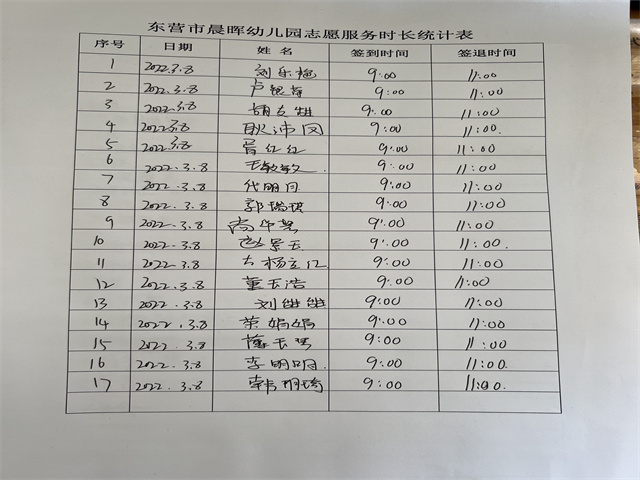 东营市晨晖幼儿园志愿服务时长统计表
序号 日期 姓名 签到时间 签退时间
1 2022.3.8 9:00 11:00
2 2022.3.8 9:00 11:00
3 2022.3.8 9:00 11:00
4 2022.3.8 耿沛凤 9:00 11:00
5 2022.3.8 胥红红 9:00 11:00
6 2022.3.8 王敏敏 9:00 11:00
7 2022.3.8 代明月 9:00 11:00
8 2022.3.8 郭瑞琪 9:00 11:00
9 2022.3.8 9:00 11:00
10 2022.3.8 赵景玉 9:00 11:00
11 2022.3.8 杨立江 9:00 11:00
12 2022.3.8 董玉浩 9:00 11:00
13 2022.3.8 刘继继 9:00 11:00
14 2022.3.8 荣娟娟 9:00 11:00
15 2022.3.8 9:00 11:00
16 2022.3.8 李明明 9:00 11:00
17 2022.3.8 韩明琦 9:00 11:00